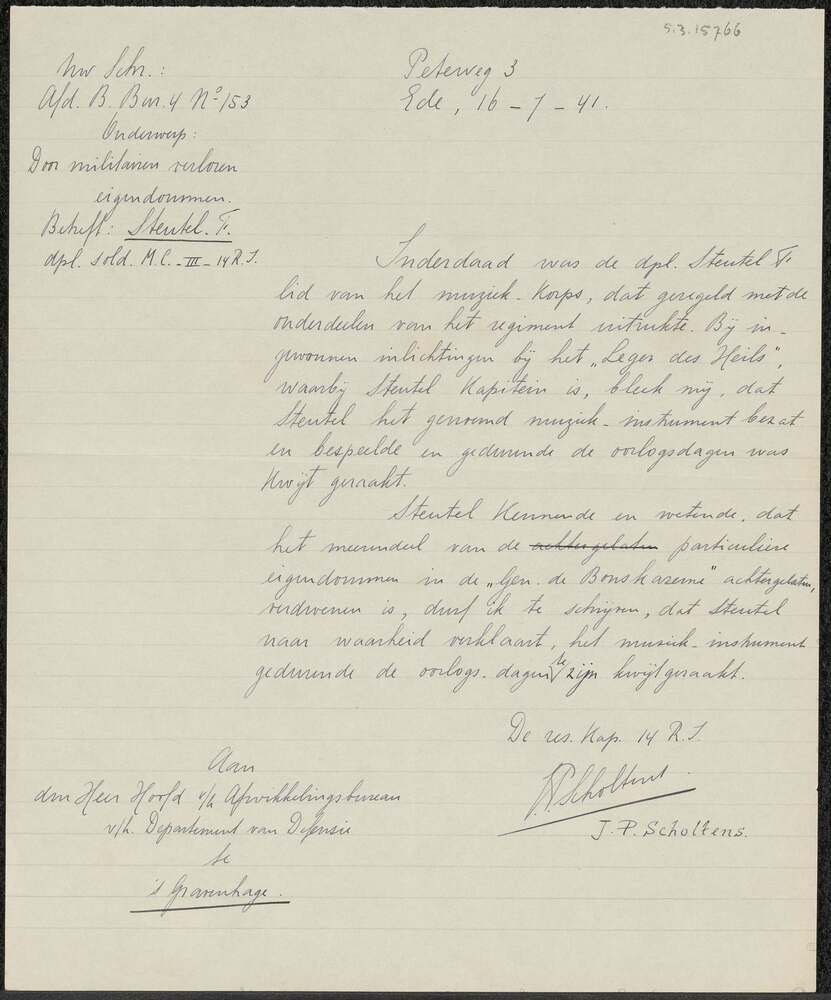 S.3.15766
Uw Schr.:
Afd. B. Bur. 4 No 153
Onderwerp:
Door militairen verloren
eigendommen.
Betreft: Steutel. F.
dpl. sold. M.C. - III - 14 R.I.
Peterweg 3
Ede, 16 - 7 - 41.
Inderdaad was de dpl. Steutel F.
lid van het muziek-korps, dat geregeld met de
onderdeelen van het regiment uitrukte. Bij in-
gewonnen inlichtingen bij het „Leger des Heils",
waarbij Steutel Kapitein is, bleek mij, dat
Steutel het genoemd muziek-instrument bezat
en bespeelde en gedurende de oorlogsdagen was
kwijt geraakt.
Steutel kennende en wetende, dat
het meerendeel van de achtergelaten particuliere
eigendommen in de „Gen. de Bonskazerne" achtergelaten,
verdwenen is, durf ik te schrijven, dat Steutel
naar waarheid verklaart, het musiek-instrument
gedurende de oorlogs-dagen te zijn kwijtgeraakt.
De res. Kap. 14 R.I.
JPScholtens
J.P. Scholtens.
Aan
den Heer Hoofd v/h Afwikkelingsbureau
v/h. Departement van Defensie
te
's Gravenhage.